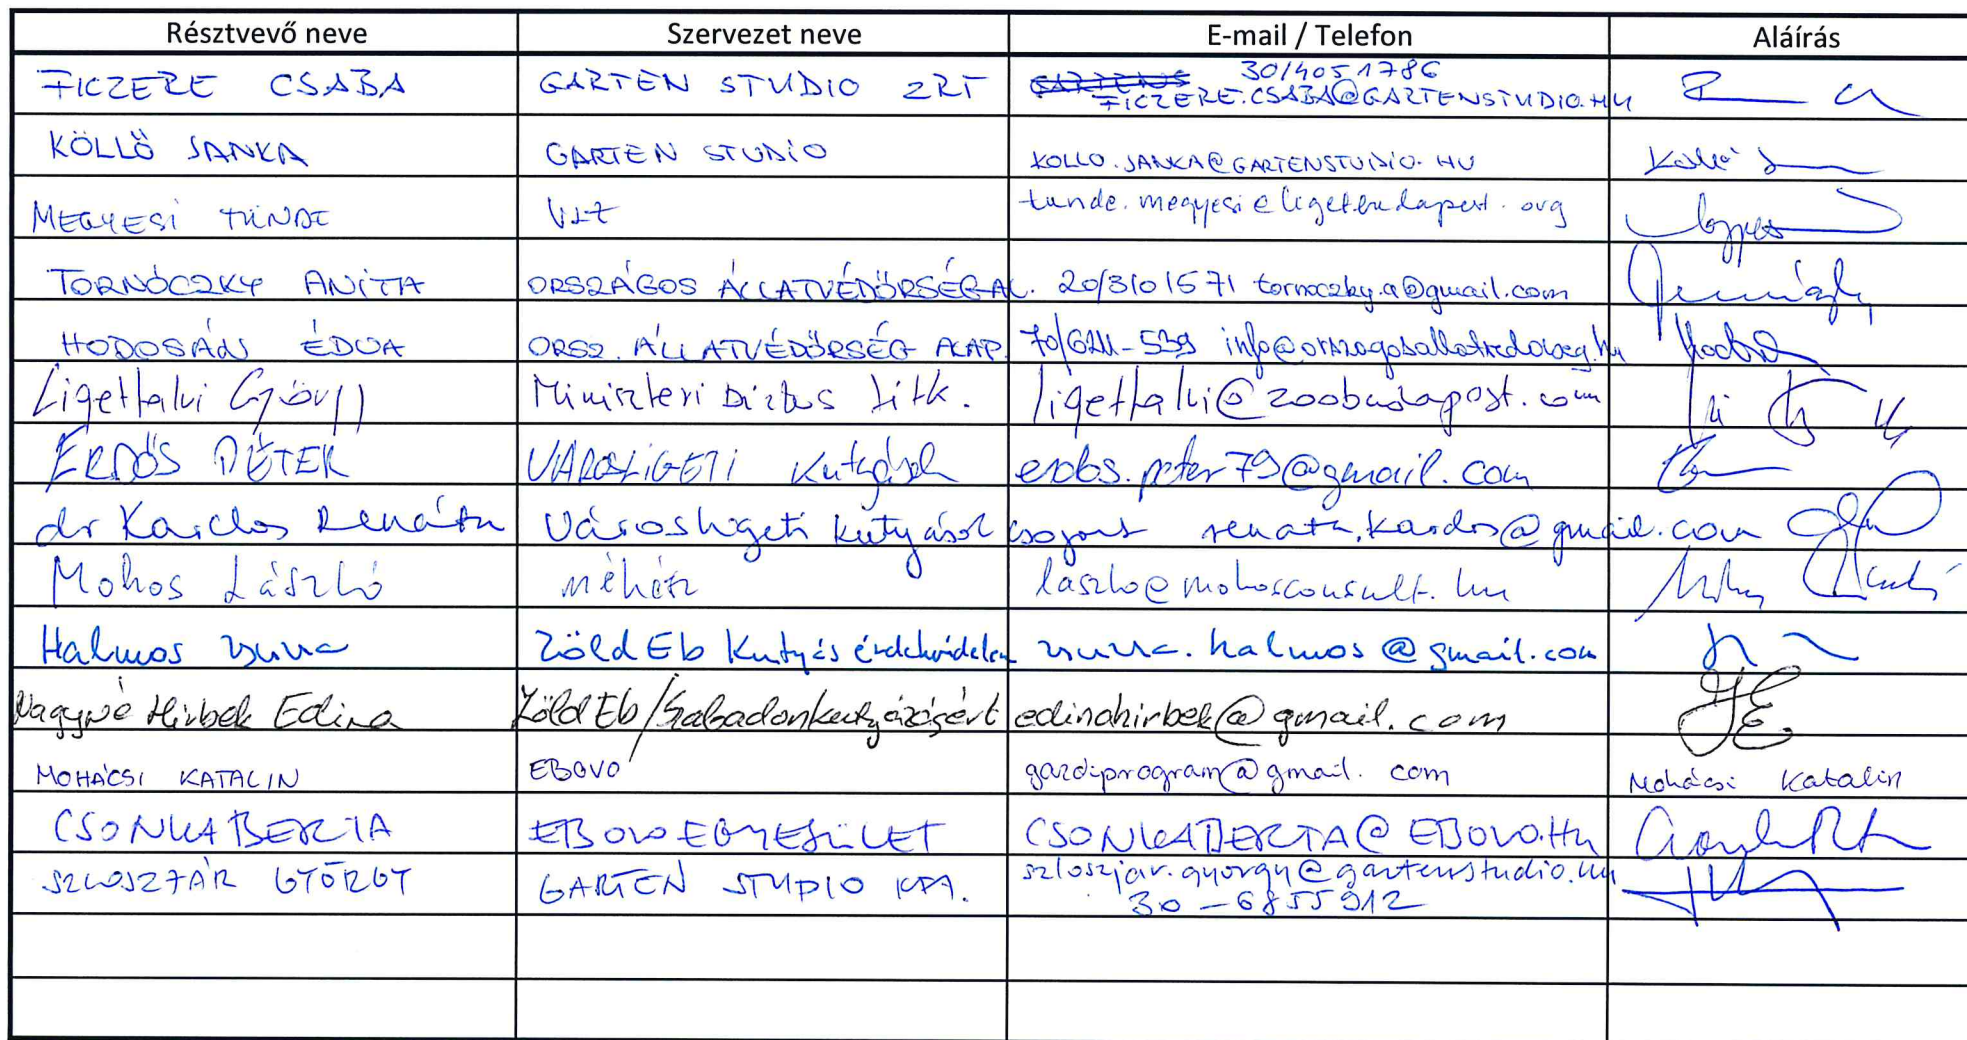 Résztvevő neve Szervezet neve E-mail / Telefon Aláírás
FICZERE CSABA GARTEN STUDIO ZRT 30/4051786
FICZERE.CSABA@GARTENSTUDIO.HU
KÖLLŐ JANKA GARTEN STUDIO KOLLO.JANKA@GARTENSTUDIO.HU
MEGYESI TÜNDE VLZ tunde.megyesi@ligetbudapest.org
TORNÓCZKY ANITA ORSZÁGOS ÁLLATVÉDŐRSÉG AL. 20/3101571 tornoczky.a@gmail.com
HODOSÁN ÉDUA ORSZ. ÁLLATVÉDŐRSÉG ALAP.
Ligetfalvi György Miniszteri Biztos Titk. ligetfalvi@zoobudapest.com
ERDŐS PÉTER VÁROSLIGETI Kutyások erdos.peter79@gmail.com
dr Kardos Renáta Városligeti kutyások csoport renata.kardos@gmail.com
Mohos László méhész laszlo@mohosconsult.hu
Halmos Zöld Eb Kutyás érdekvédelem halmos@gmail.com
Nagyné Hirbek Edina Zöld Eb/Szabadonkutyázásért edinahirbek@gmail.com
MOHÁCSI KATALIN EBOVO gazdiprogram@gmail.com Mohácsi Katalin
CSONKA BERTA EBOVO EGYESÜLET CSONKABERTA@EBOVO.HU
SZLOSZJÁR GYÖRGY GARTEN STUDIO KFT. szloszjar.gyorgy@gartenstudio.hu
30-6855912